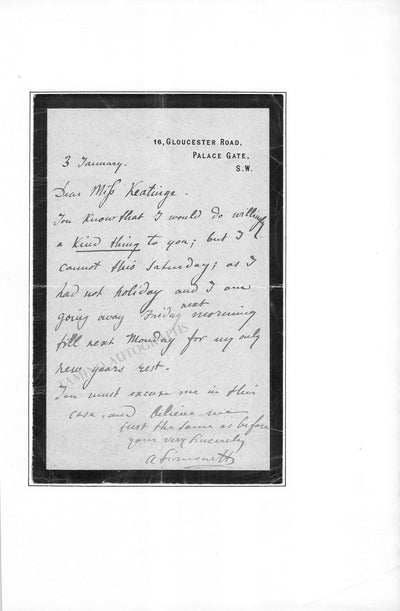 16, GLOUCESTER ROAD,
PALACE GATE,
S.W.
3 January.
Dear Miss Keatinge.
You know that I would do willingly
a kind thing to you; but I
cannot this Saturday; as I
had not holiday and I am
going away Friday next morning
till next Monday for my only
new years rest.
You must excuse me in this
case, and believe me
just the same as before
your very sincerely
TAMINO AUTOGRAPHS